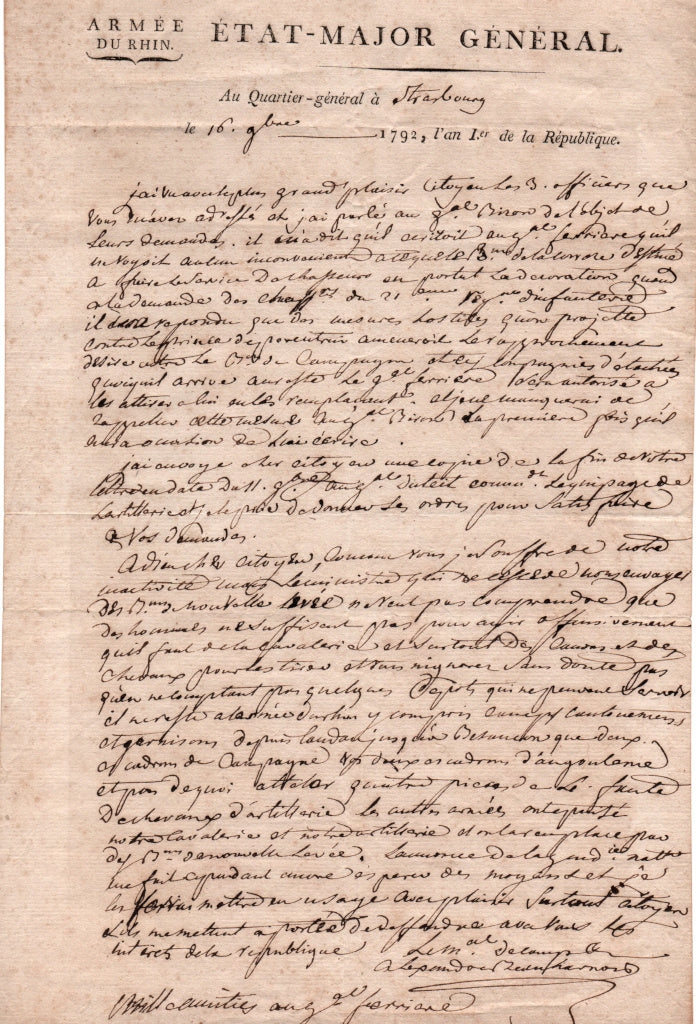 ARMÉE
DU RHIN.
ÉTAT-MAJOR GÉNÉRAL.
Au Quartier-général à Strasbourg
le 16. 9bre 1792, l'an I.er de la République.
j'ai vu avec le plus grand plaisir Citoyen les 3. officiers que
vous m'avez adressés et j'ai parlé au gal Biron de l'objet de
leurs demandes. il m'a dit qu'il écrivoit au gal ferriere qu'il
ne voyoit aucun inconvenient a ce que le Bon de la
a faire le service de chasseurs en portat la decoration quand
a la demande des du 21eme Regt d'infanterie
il repondu que des mesures hostiles qu'on projette
contre le prince de porentrui ameneroit le rapprochement
désiré entre le Bon de Campagne et ces compagnies détachées
quoiqu'il arrive au reste le gal ferriere autorisé a
les attirer a lui en les remplaçant et je ne manquerai de
rappeller cette mesure au gal Biron la premiere fois qu'il
aura occasion de lui écrire.
j'ai envoyé cher citoyen une copie de la fin de votre
lettre en date du 11. 9bre au gal Duteil commdt l'equipage de
l'artillerie et je le prie de donner ses ordres pour satisfaire
a vos demandes.
Adieu cher citoyen, comme vous je souffre de notre
inactivité mais le ministre qui ne cesse de nous envoyer
des Bons de nouvelle levée ne veut pas comprendre que
des hommes ne suffisent pas pour agir offensivement
qu'il faut de la cavalerie et surtout des canons et des
chevaux pour les tirer et vous n'ignorez sans doute pas
qu'en ne comptant pas quelques depots qui ne peuvent servir
il ne reste a l'armée du rhin y compris camps cantonnemens
et garnisons depuis landau jusqu'a Besancon que deux
escadrons de Campagne vos deux escadrons d'angouleme
et pas de quoi atteler quatre pieces de 4. faute
de chevaux d'artillerie les autres armées ont epuisé
notre cavalerie et notre artillerie et on la remplace par
des Bons de nouvelle levée. l'annonce de la natle
me fait cependant encore esperer des moyens et je
les mettrai en usage avec plaisir surtout citoyen
s'ils me mettent a portée de deffendre avec vous les
interets de la republique
Le Mal de camp
alexandre Beauharnois
Mille amitiés au gal ferriere